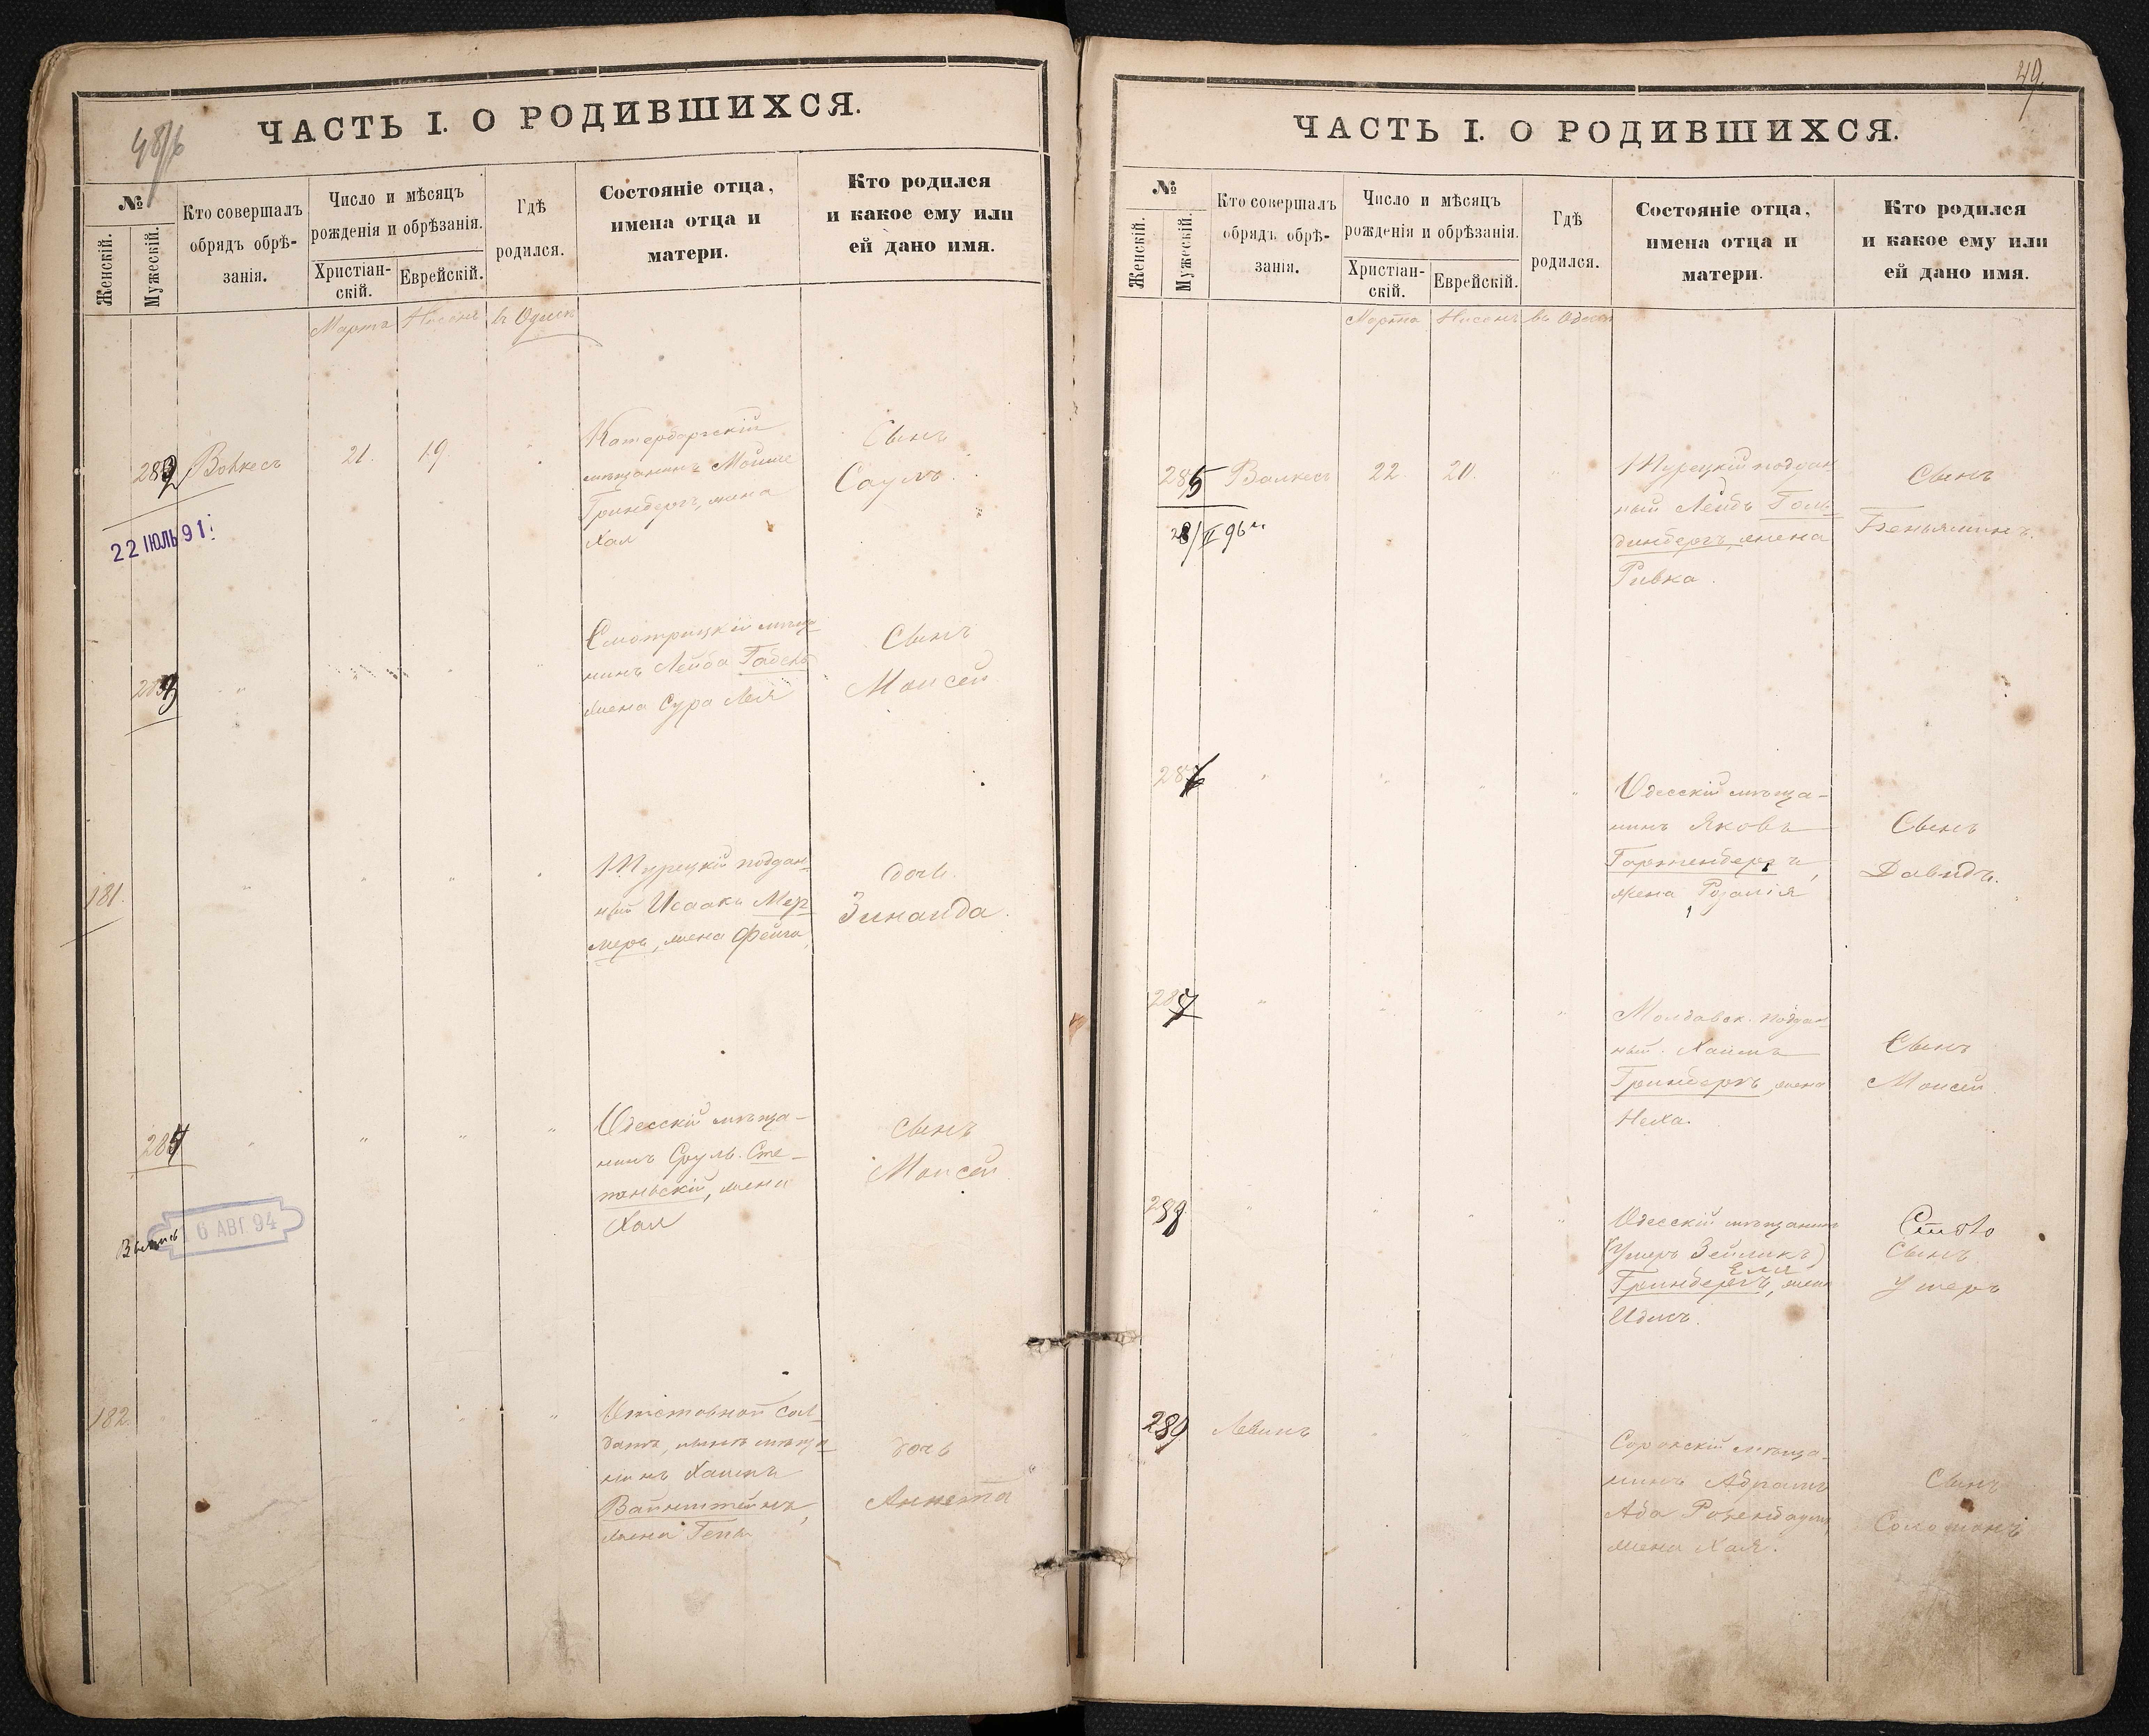 ЧАСТЬ I. О РОДИВШИХСЯ.
№
Женскій.
Мужескій.
Кто совершалъ
обрядъ обрѣ-
занія.
Число и мѣсяцъ
рожденія и обрѣзанія.
Христіан-
скій.
Еврейскій.
Гдѣ
родился.
Состояніе отца,
имена отца и
матери.
Кто родился
и какое ему или
ей дано имя.
Марта
21.
19.
мѣщанинъ
Гринбергъ, жена
Хая
Сынъ
Саулъ.
22 ІЮЛЬ 91
Смотрицкій мѣща
нинъ Лейба
жена Сура Лея
Сынъ
Моисей
181.
Турецкій поддан
ный Исаакъ Мер
меръ, жена Фейга
дочь.
Зинаида.
Одесскій мѣща-
нинъ Сруль Сте-
паньскій, жена
Хая
сынъ
Моисей
6 АВГ. 94
182.
Отставной сол
датъ,
нинъ Хаимъ
Вайнштейнъ,
жена
дочь
Аннета
49.
ЧАСТЬ I. О РОДИВШИХСЯ.
№
Женскій.
Мужескій.
Кто совершалъ
обрядъ обрѣ-
занія.
Число и мѣсяцъ
рожденія и обрѣзанія.
Христіан-
скій.
Еврейскій.
Гдѣ
родился.
Состояніе отца,
имена отца и
матери.
Кто родился
и какое ему или
ей дано имя.
Марта
Нисонъ
285
22
20.
Турецкій поддан
ный Лейбъ Голь
динбергъ, жена
Ривка.
Сынъ
Беньяминъ.
286
Одесскій мѣща-
нинъ Яковъ
Гартенбергъ,
жена Розалія
Сынъ
Давидъ.
287
Молдавск. поддан
ный. Хаимъ
Гринбергъ, жена
Неха.
Сынъ
Моисей
288
Одесскій мѣщанинъ
Гринбергъ, жена
Идесъ.
Сынъ
289
Левинъ
Сорокскій мѣща-
нинъ Абрамъ
Аба Розенбаумъ
жена Хая.
Сынъ
Соломонъ